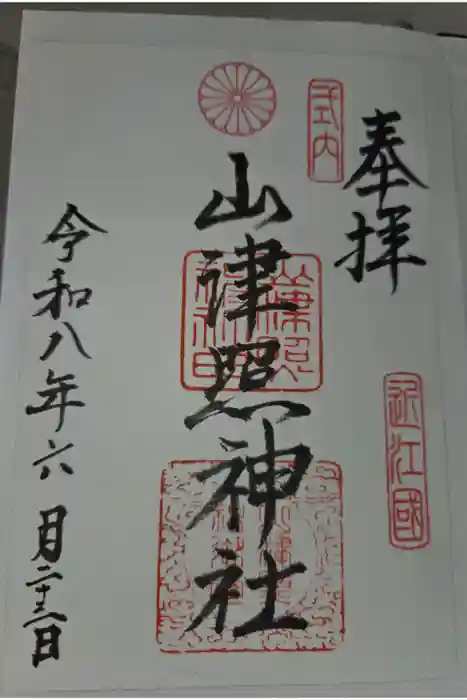 奉拝
式内
近江國
山津照神社
令和八年六月二十二日